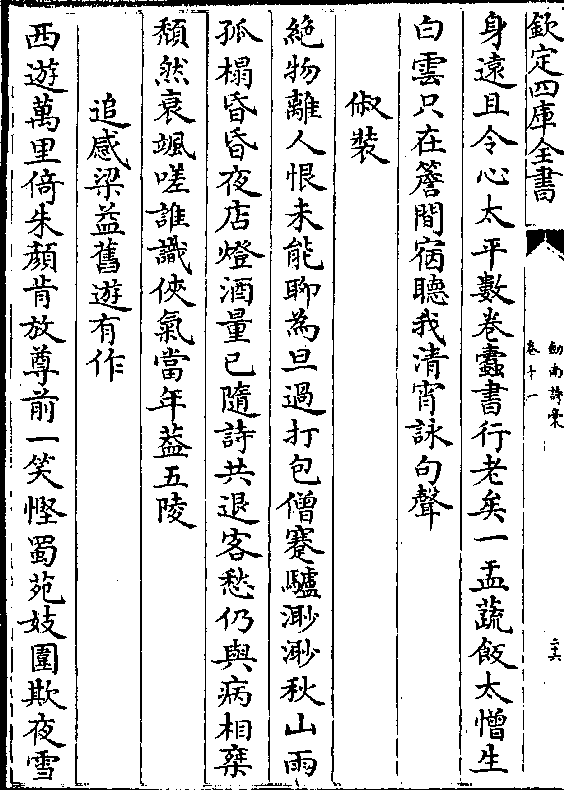 欽定四庫全書
劒南詩稾
卷十一
二十六
身遠且令心太平數卷蠹書行老矣一盂蔬飯太憎生
白雲只在簷間宿聽我清宵詠句聲
俶裝
絶物離人恨未能聊為旦過打包僧蹇驢渺渺秋山雨
孤榻昏昏夜店燈酒量已隨詩共退客愁仍與病相椉
頽然衰颯嗟誰識俠氣當年葢五陵
追感梁益舊遊有作
西遊萬里倚朱顔肯放尊前一笑慳蜀苑妓圍欺夜雪